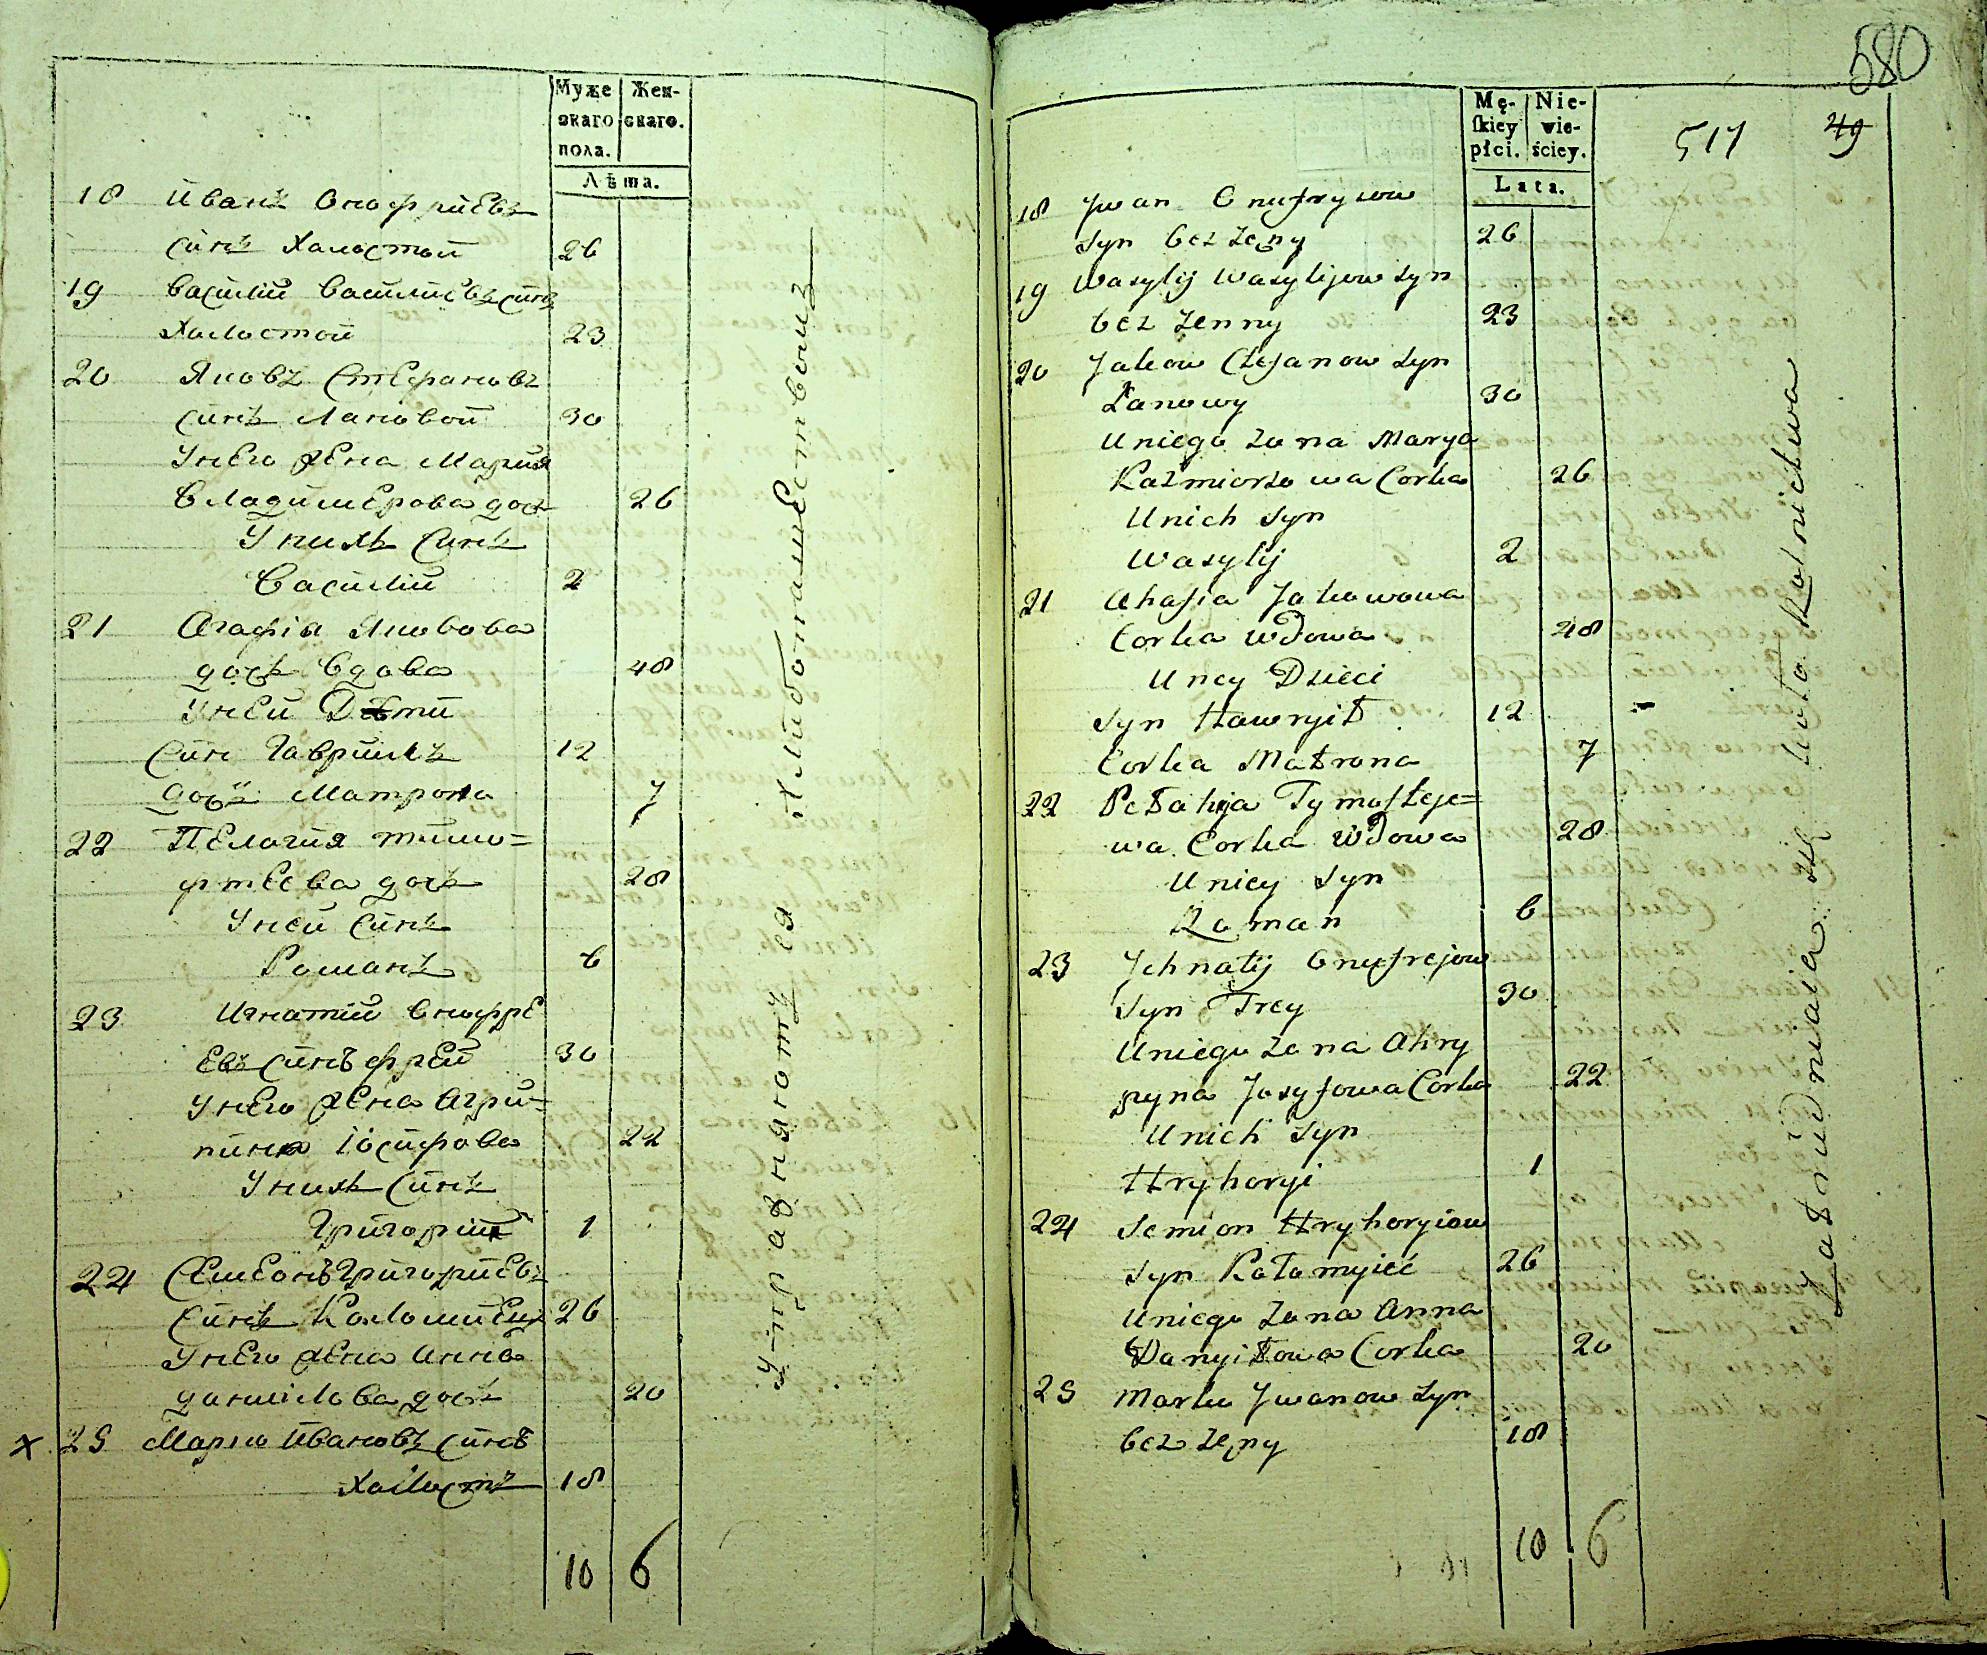 Муже Жен-
скаго скаго.
пола.
Лѣта.
18 Иванъ Онофриевъ
синъ Халостой 26
19 Василий Василиевъ синъ
Халостой 23
20 Яковъ Стефановъ
синъ Лановой 30
У него жена Мария
Владимерова дочь 26
У нихъ синъ
Василий 2
21 Агафія Яковова
дочь вдова 48
У ней Дѣти
Синъ Гаврилъ 12
дочь Матрона 7
22 Пелагия тимо=
фтеева дочь 28
У ней Синъ
Романъ 6
23 Игнатий Онофре
евъ синъ фрей 30
У него жена Агри=
пина Іосифова 22
У нихъ синъ
Григорий 1
24 Семеонъ Григориевъ
Синъ Коломиецъ 26
У него жена Анна
данилова дочь 20
х 25 Марко Ивановъ синъ
Халостъ 18
10 6
Упражняются Хлибопашествомъ
580
Mę- Nie-
skiey wie-
płci. ściey.
Lata.
517 49
18 Jwan Onufryiow
Syn bez Zeny 26
19 Wasylij Wasylijow Syn
bez Zenny 23
20 Jakow Stefanow Syn
Łanowy 30
U niego Zona Marya
Kazmiorzowa Corka 26
U nich Syn
Wasylij 2
21 Ahafia Jakowowa
Corka Wdowa 48
U ney Dzieci
Syn Hawryił 12
Corka Matrona 7
22 Pełahija Tymofteje=
wa Corka Wdowa 28
U niey Syn
Roman 6
23 Jhnatij Onufrejow
Syn Frey 30
U niego Zona Ahry
pyna Josyfowa Corka 22
U nich Syn
Hryhoryi 1
24 Semion Hryhoryiow
Syn Kołomyieć 26
U niego Zona Anna
Danyiłowa Corka 20
25 Marko Jwanow Syn
bez Zeny 18
10 6
Zatrudniaia się koło Rolnictwa